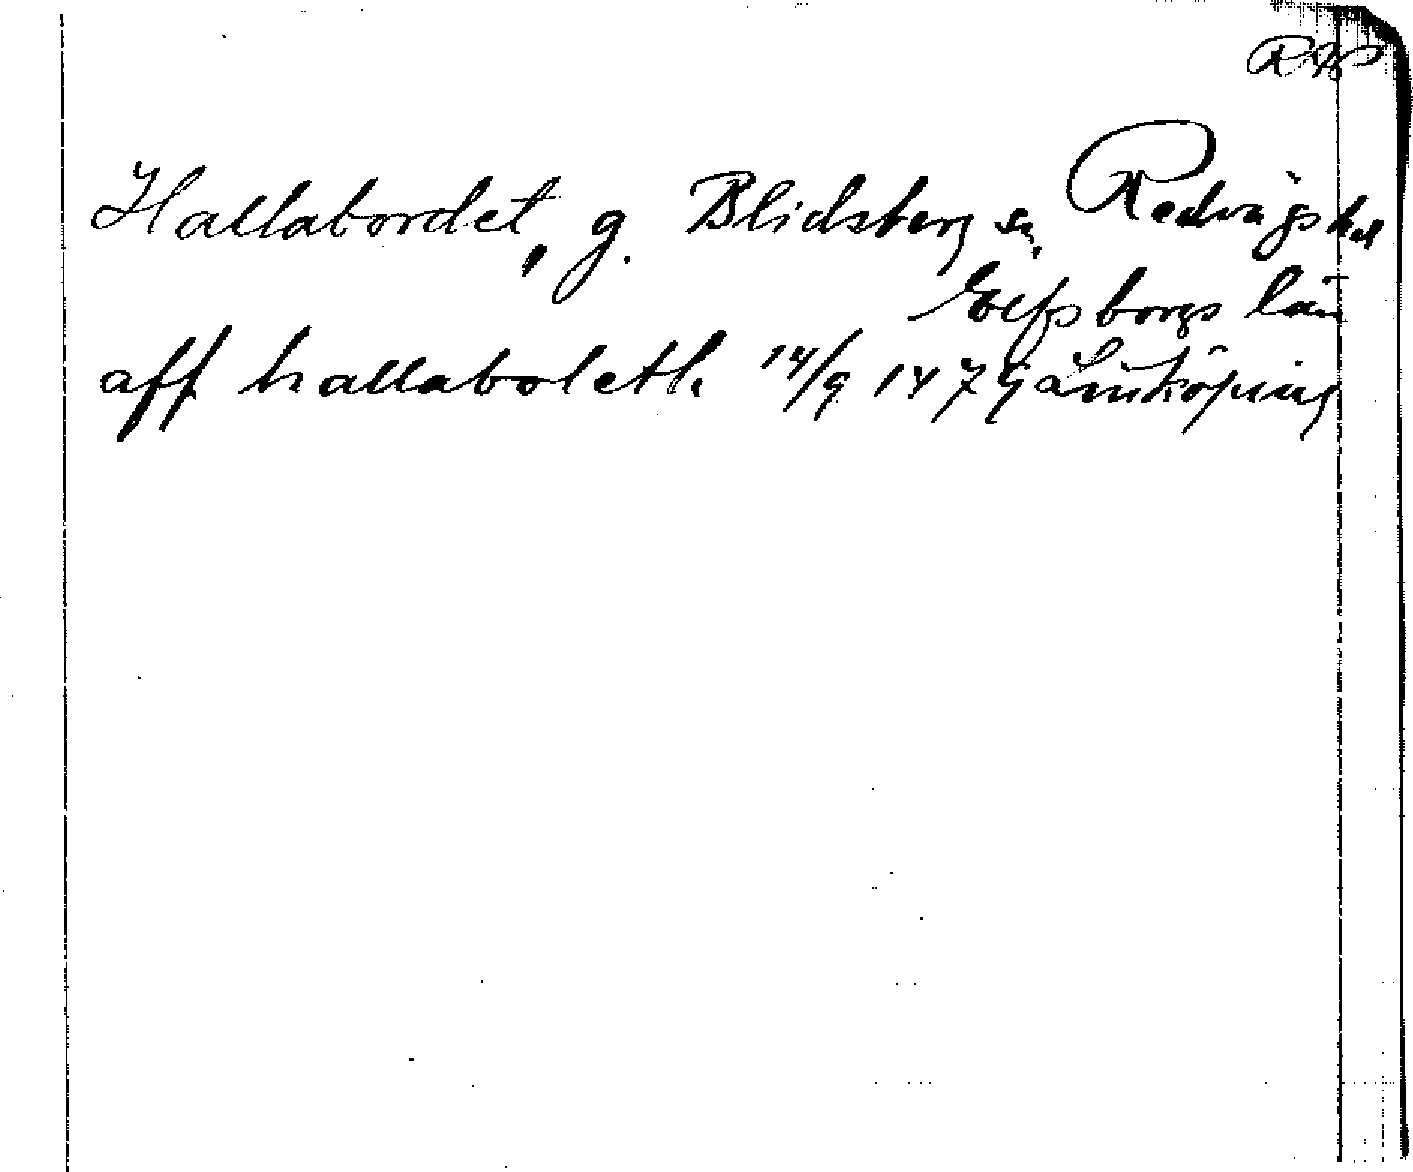 RAP
Hallabordet, g. Blidsberg sn, Redvägs hd
Elfsborgs län
aff hallaboleth 14/9 1479 Linköping